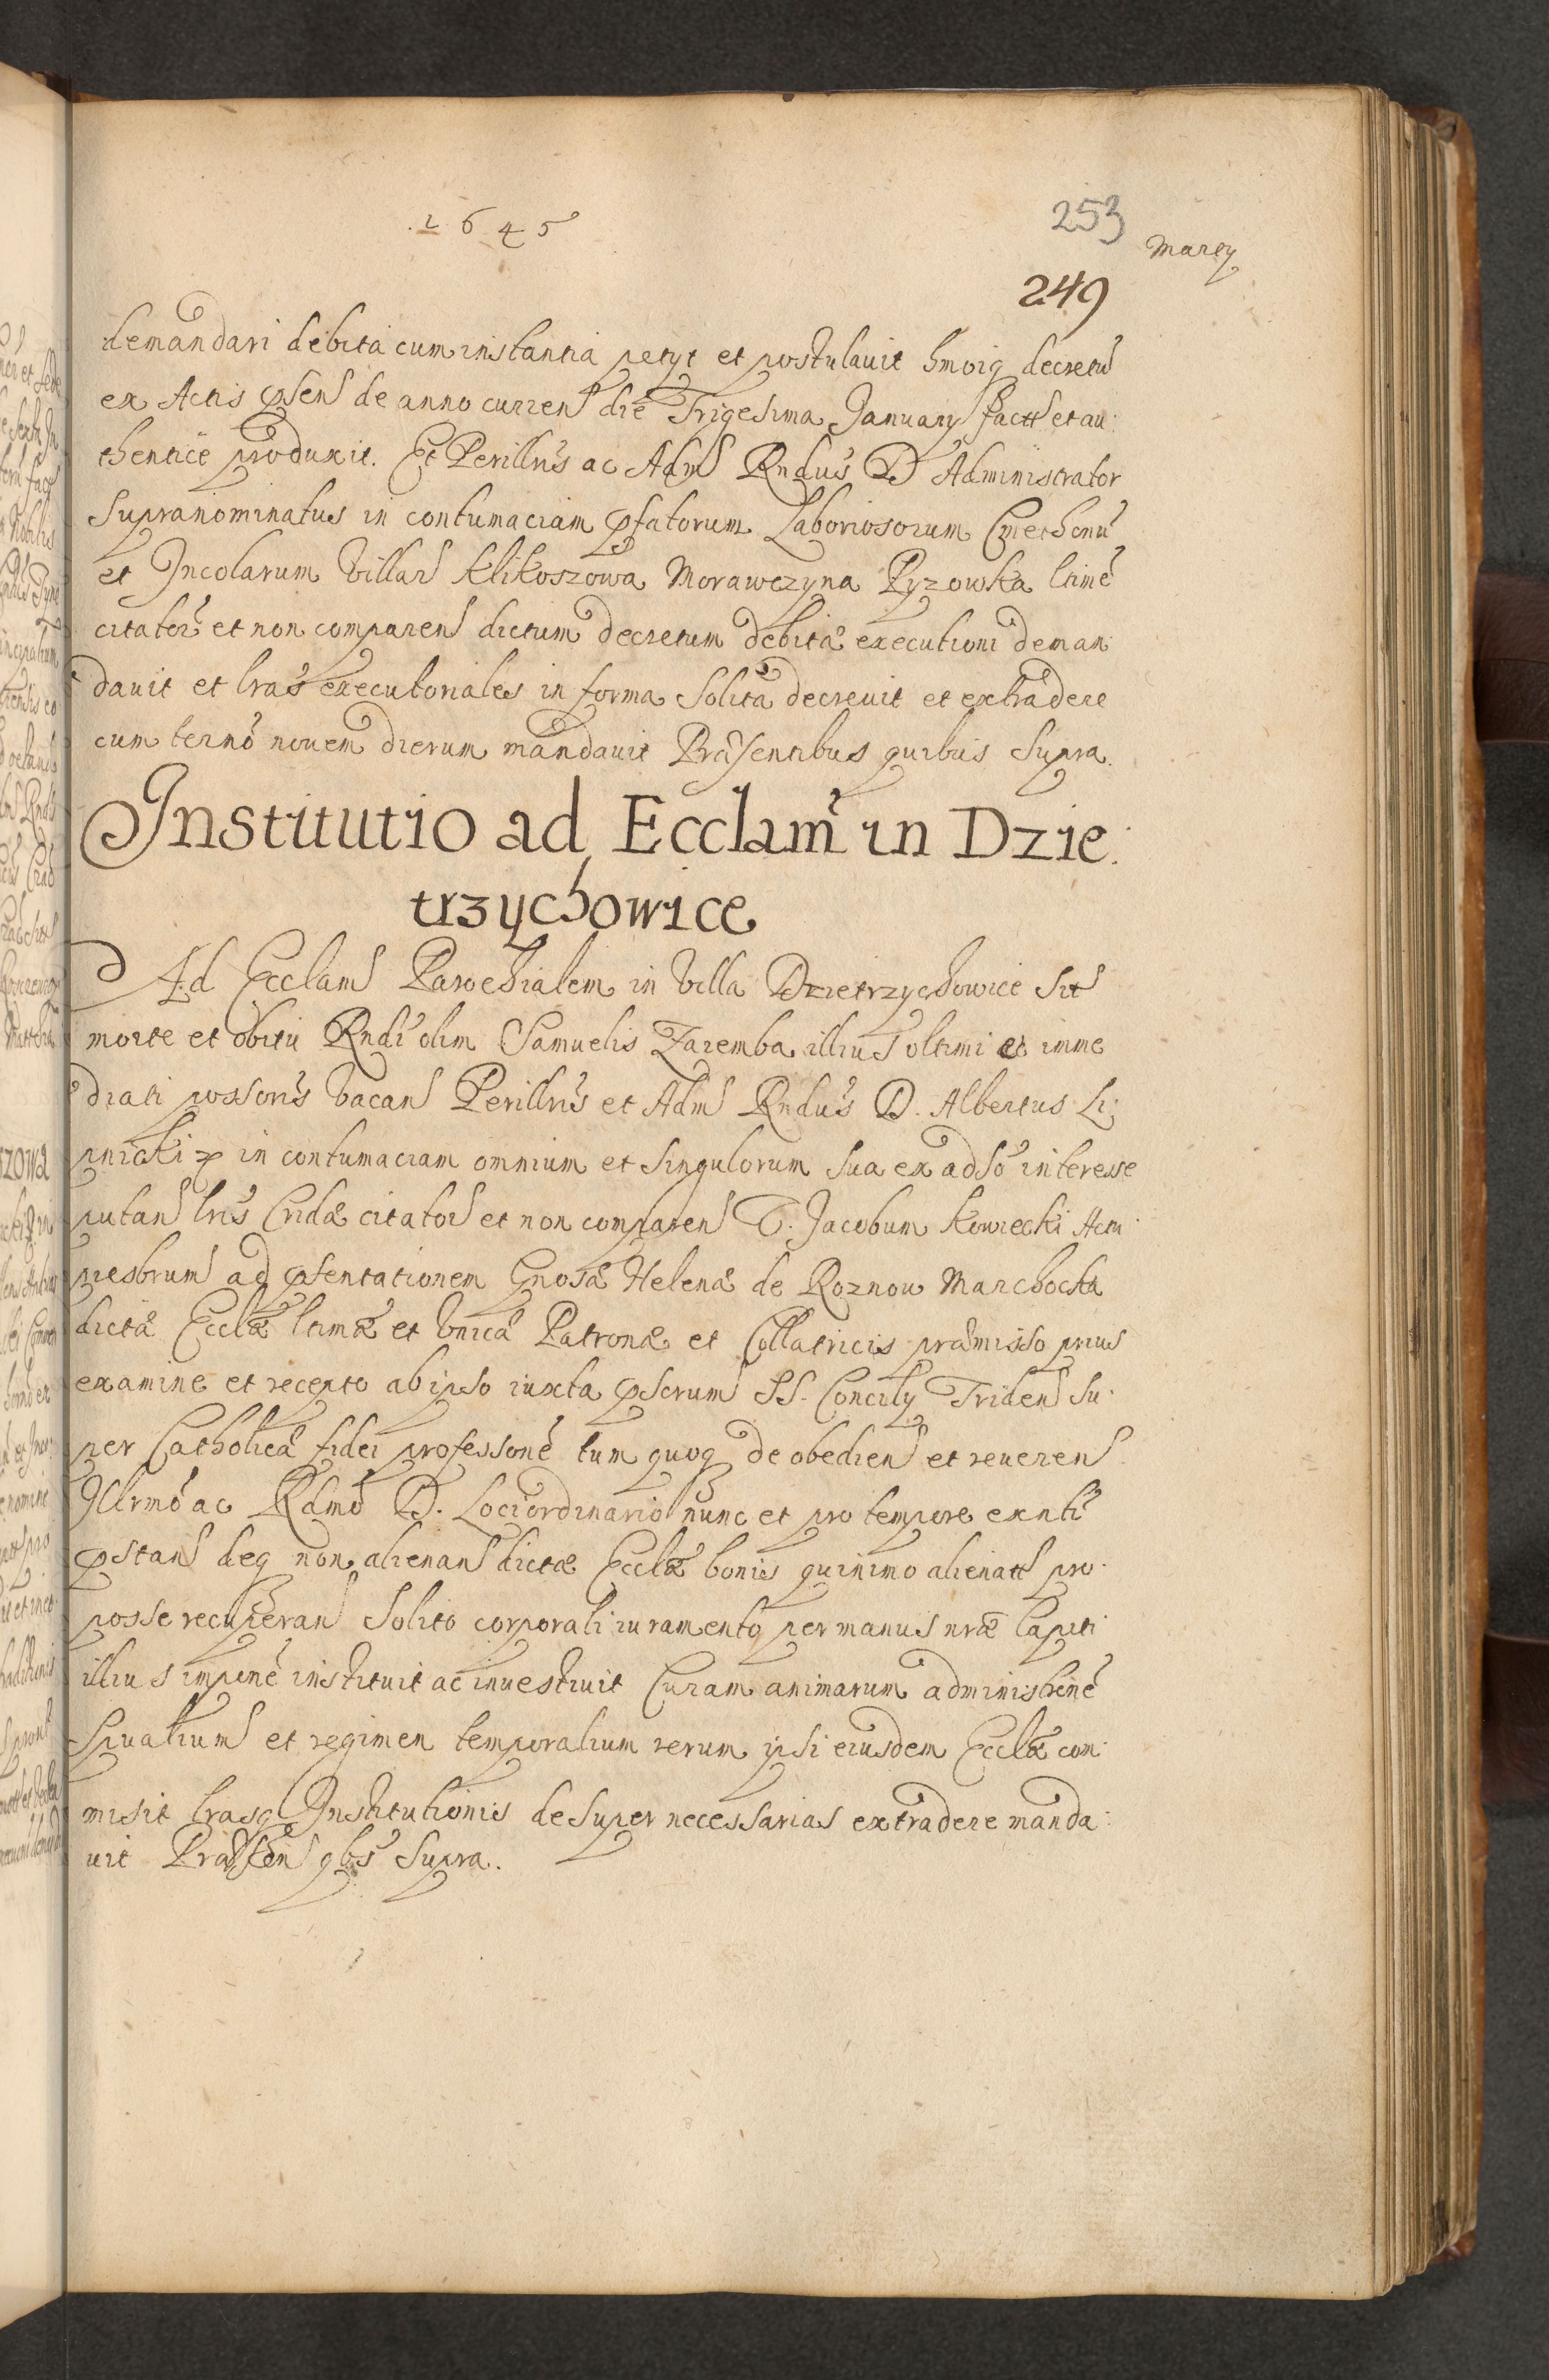 1645
253
Martÿ
249
demandari debita cum instantia petÿt et postulavit hmoiq decretũ
ex Actis pñsen de anno curren die Trigesima Januarÿ factt et au:
thentice produxit. Et Perillris ac Adm Rndus D Administrator
supranominatus in contumaciam pfatorum Laboriosorum Cmethonũ
et Incolarum Villar Klikoszowa Morawczyna Pyzowka ltimẽ
citator et non comparen dictum decretum debitæ executioni deman
davit et lras executoriales in forma solita decrevit et extradere
cum termõ novem dierum mandavit Præsentibus quibus supra.
Institutio ad Ecclam in Dzie:
trzychowice
Ad Ecclam Parochialem in Villa Dzietrzychowice sit
morte et obitu Rndi olim Samuelis Zaremba illius ultimi et imme
diati possoris vacan Perillris et Adm Rndus D. Albertus Li:
pnicki in contumaciam omnium et singulorum sua ex adso interesse
putan lris Cridæ citator et non comparen D. Jacobum Kowiecki Actu
presbrum ad psentationem Gnosæ Helenæ de Roznow Marchocka
dictæ Ecclæ ltimæ et Vnicæ Patronæ et Collatricis præmisso prius
examine et recepto ab ipso iuxta pscrum SS. Concilÿ Triden su:
per Catholicæ fidei professone tum quoq de obedien et reveren
Illrmo ac Rdmo D. Loci ordinario nunc et pro tempore exnti
pstan deq non alienan dictæ Ecclæ bonis quinimo alienatt pro
posse recuperan solito corporali iuramento per manus nræ Capiti
illius impone instituit ac investivit Curam animarum administrone
spualium et regimen temporalium rerum ipsi eiusdem Ecclæ com:
misit lrasq Institutionis desuper necessarias extradere manda:
vit Præsen qbs supra.